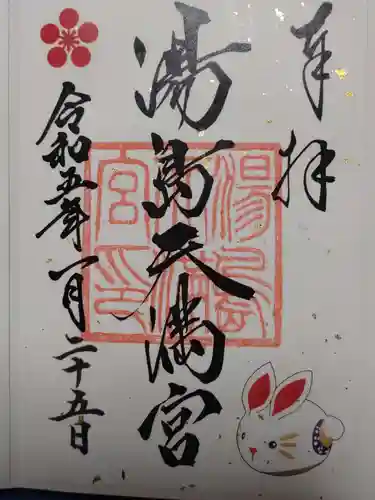 奉拝
湯島天満宮
湯島天満宮印
令和五年一月二十五日